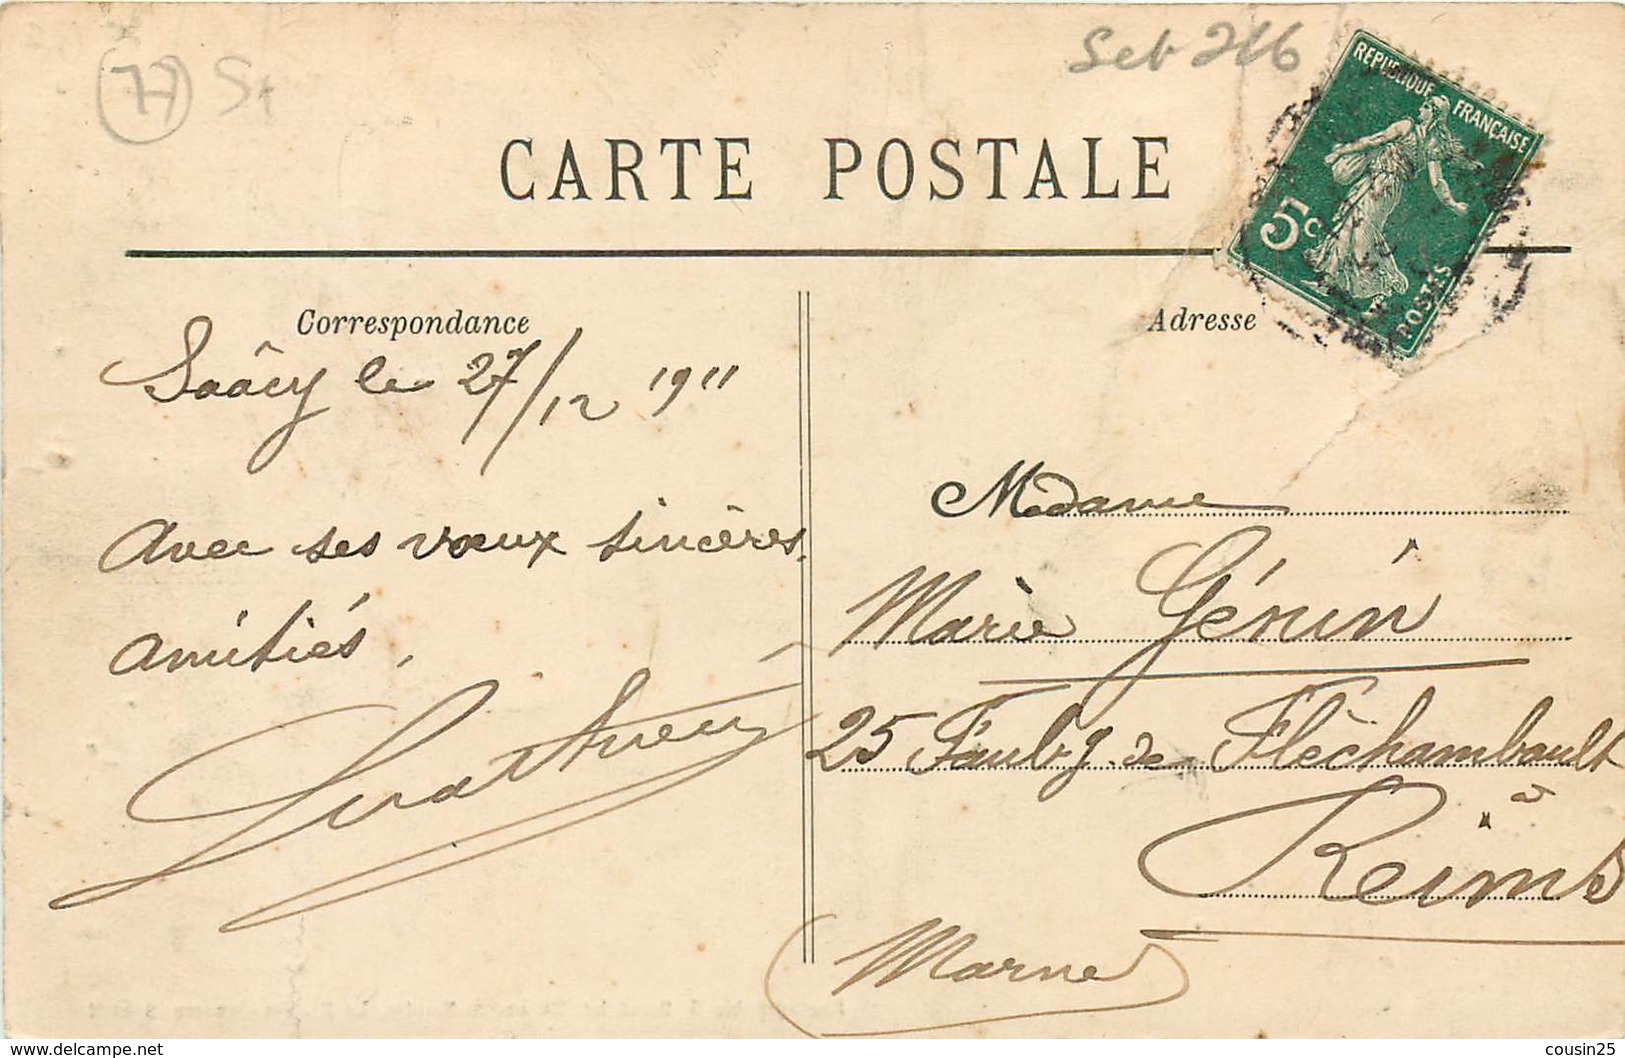 77 St
Seb 266
RÉPUBLIQUE FRANÇAISE
5c
POSTES
CARTE POSTALE
Correspondance
Adresse
Saâcy le 27/12 1911
Avec ses vœux sincères,
amitiés,
Madame
Marie Génin
25 Faubg. de Fléchambault
Reims
(Marne)
www.delcampe.net
cousin25